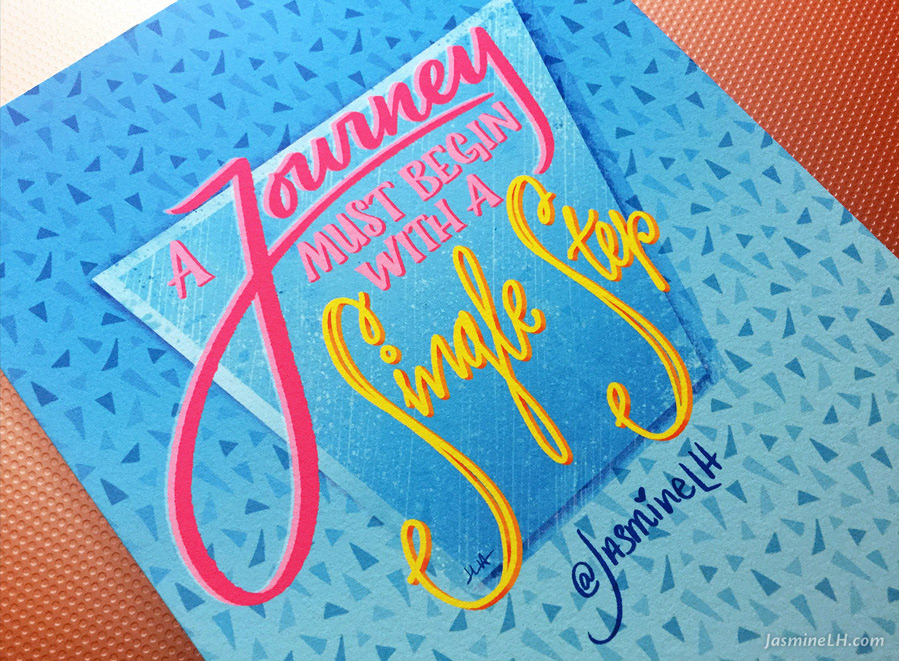 A Journey
MUST BEGIN
WITH A
Single Step
JLH
@JASMINELH
JasmineLH.com